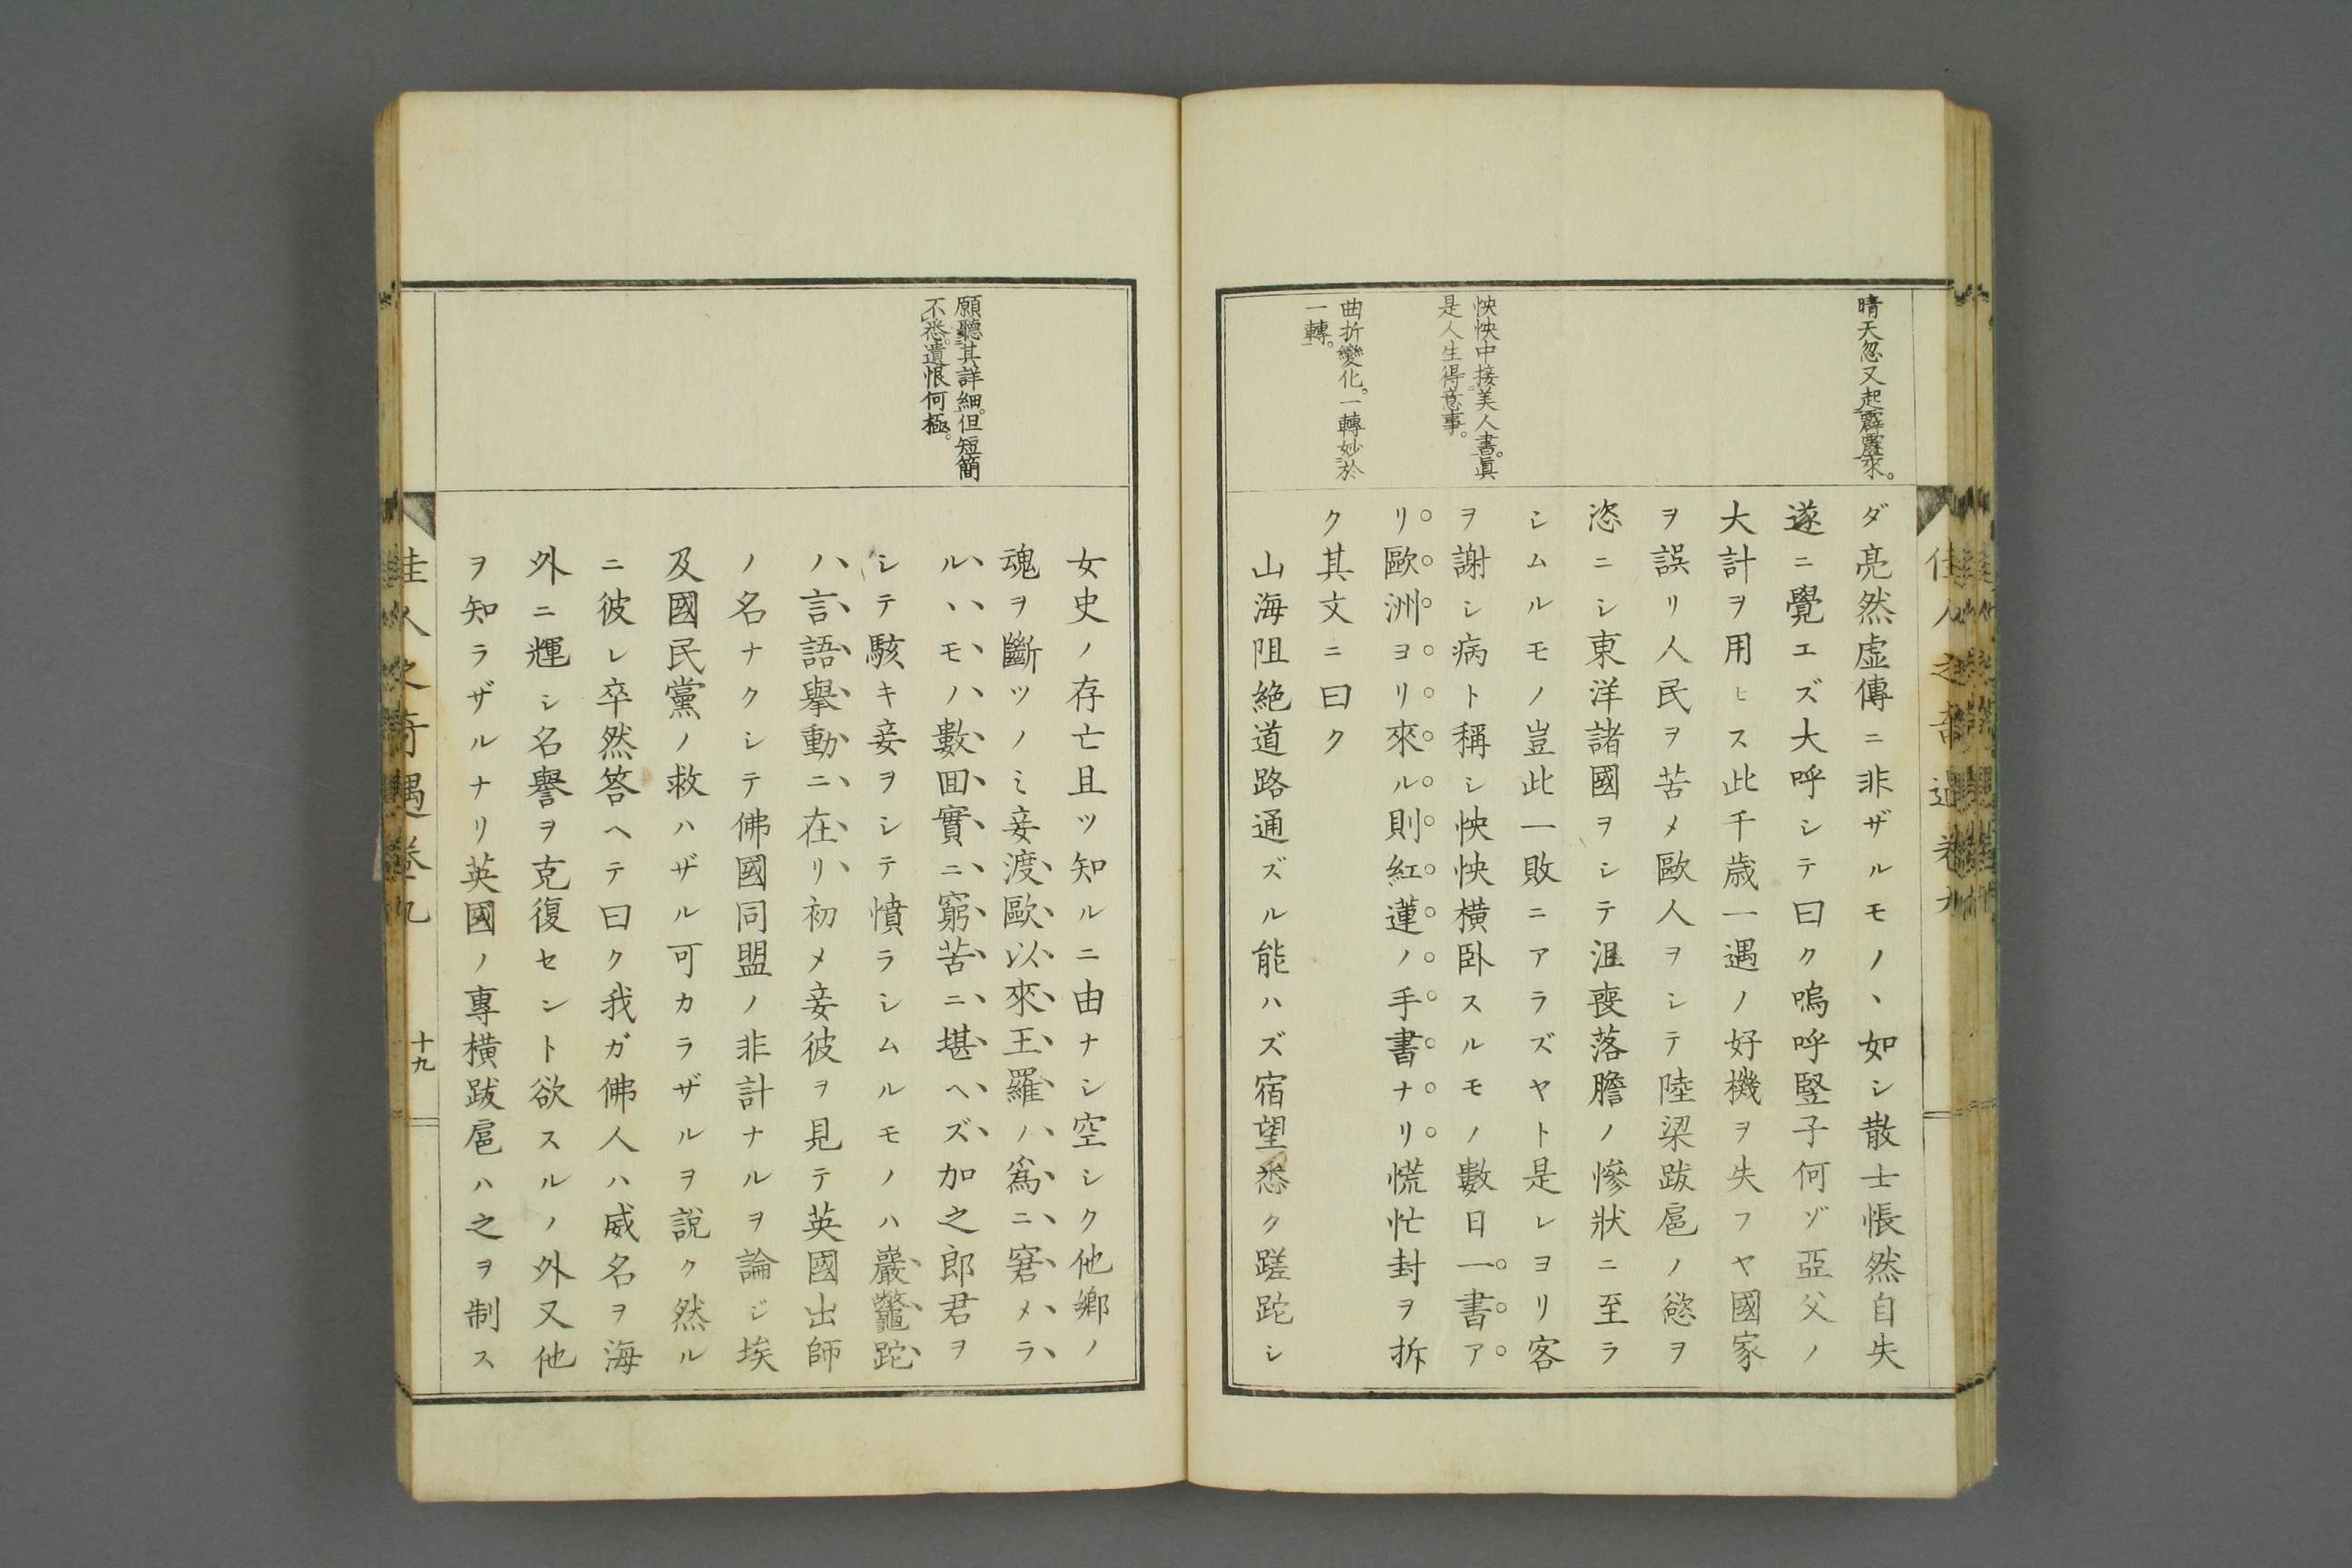 佳人之奇遇卷九
晴天忽又起霹靂來。
怏怏中接美人書。眞
是人生得意事。
曲折變化。一轉妙於
一轉。
ダ亮然虛傳ニ非ザルモノヽ如シ散士悵然自失
遂ニ覺エズ大呼シテ曰ク嗚呼竪子何ゾ亞父ノ
大計ヲ用ヒス此千歳一遇ノ好機ヲ失フヤ國家
ヲ誤リ人民ヲ苦メ歐人ヲシテ陸梁跋扈ノ慾ヲ
恣ニシ東洋諸國ヲシテ沮喪落膽ノ慘狀ニ至ラ
シムルモノ豈此一敗ニアラズヤト是レヨリ客
ヲ謝シ病ト稱シ怏怏横臥スルモノ數日一書ア
リ歐洲ヨリ來ル則紅蓮ノ手書ナリ慌忙封ヲ拆
ク其文ニ曰ク
山海阻絶道路通ズル能ハズ宿望悉ク蹉跎シ
願聽其詳細。但短簡
不悉。遺恨何極。
女史ノ存亡且ツ知ルニ由ナシ空シク他鄉ノ
魂ヲ斷ツノミ妾渡歐以來王羅ノ爲ニ窘メラ
ルヽモノ數回實ニ窮苦ニ堪ヘズ加之郎君ヲ
シテ駭キ妾ヲシテ憤ラシムルモノハ巖鼈跎
ハ言語擧動ニ在リ初メ妾彼ヲ見テ英國出師
ノ名ナクシテ佛國同盟ノ非計ナルヲ論ジ埃
及國民黨ノ救ハザル可カラザルヲ說ク然ル
ニ彼レ卒然答ヘテ曰ク我ガ佛人ハ威名ヲ海
外ニ輝シ名譽ヲ克復セント欲スルノ外又他
ヲ知ラザルナリ英國ノ專橫跋扈ハ之ヲ制ス
佳人之奇遇卷九
十九